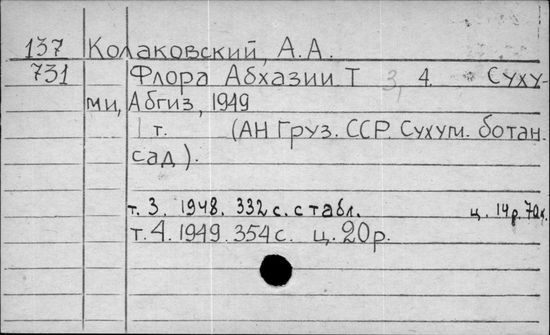 137 Колаковский, А.А.
731 Флора Абхазии. Т 3, 4. Суху-
ми, Абгиз, 1949
1 т. (АН Груз. ССР. Сухум. ботан.
сад).
т. 3. 1948. 332 с. с табл. ц. 14 р. 70 к.
т. 4. 1949. 354 с. ц. 20 р.